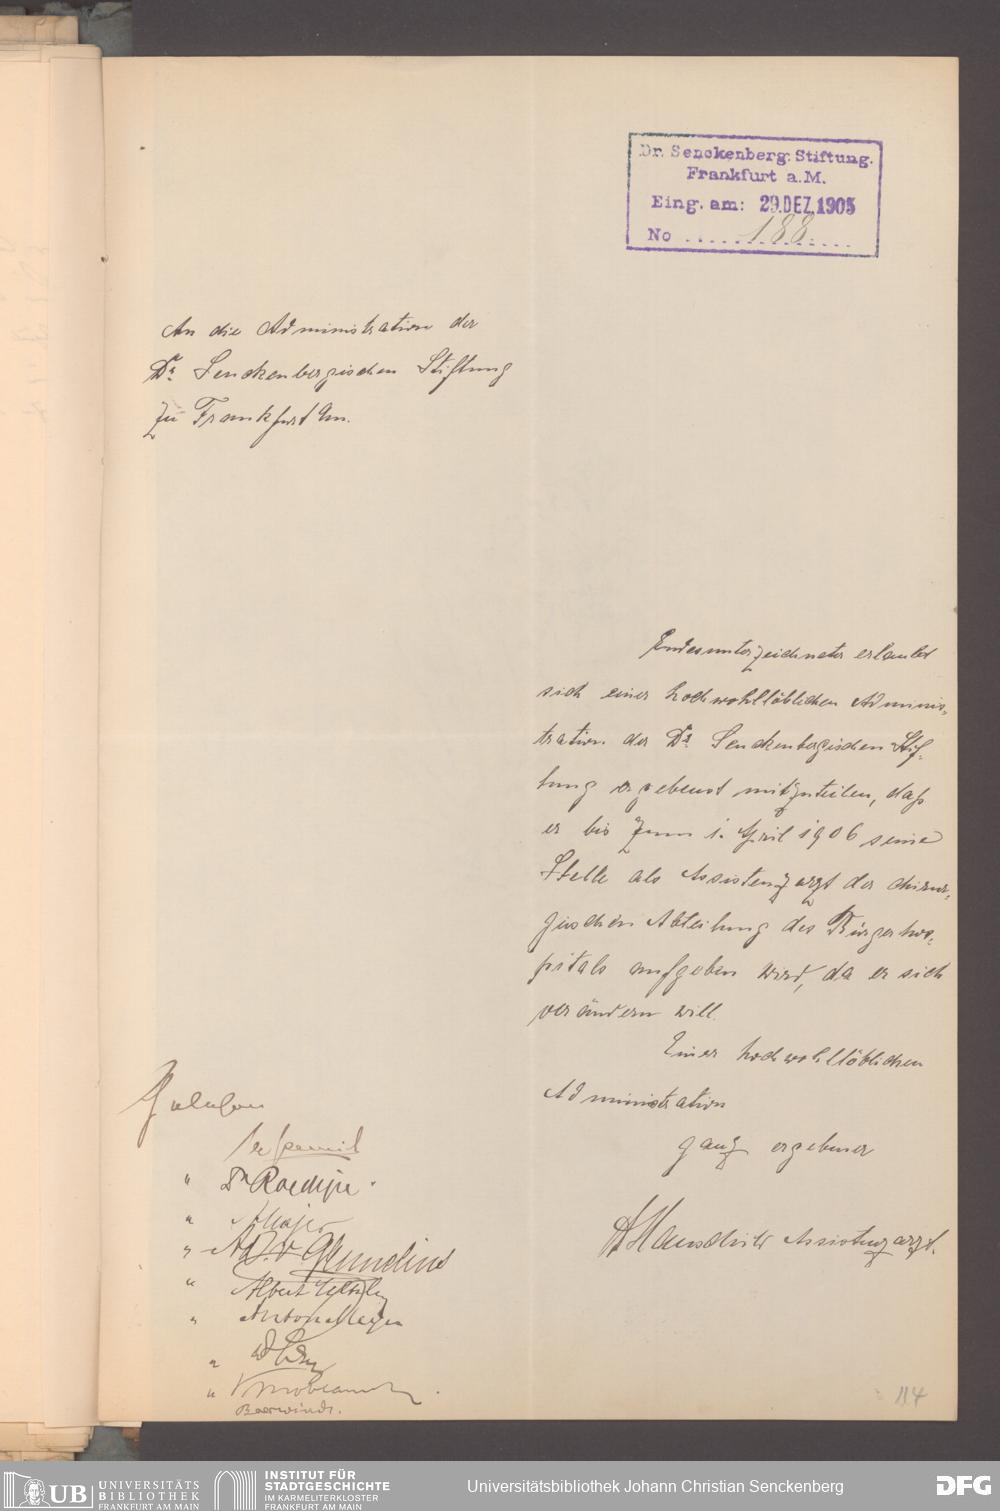 Dr. Senckenberg. Stiftung.
Frankfurt a.M.
Eing. am: 29. DEZ. 1905
No 188
An die Administration der
Dr Senckenbergischen Stiftung
zu Frankfurt a/m.
Endesunterzeichneter erlaubt
sich einer hochwohllöblichen Adminis-
tration der Dr Senckenbergischen Stif-
tung ergebenst mitzuteilen, daß
er bis zum 1. April 1906 seine
Stelle als Assistenzarzt der chirur-
gischen Abteilung des Bürgerhos-
pitals aufgeben wird, da er sich
verändern will.
Einer hochwohllöblichen
Administration
ganz ergebener
Assistenzarzt.
Gelesen
" Dr Roediger
"
"
" Albert
" Anton Meyer
"
"
Baerwindt.
114
UB UNIVERSITÄTS
BIBLIOTHEK
FRANKFURT AM MAIN
INSTITUT FÜR
STADTGESCHICHTE
IM KARMELITERKLOSTER
FRANKFURT AM MAIN
Universitätsbibliothek Johann Christian Senckenberg
DFG